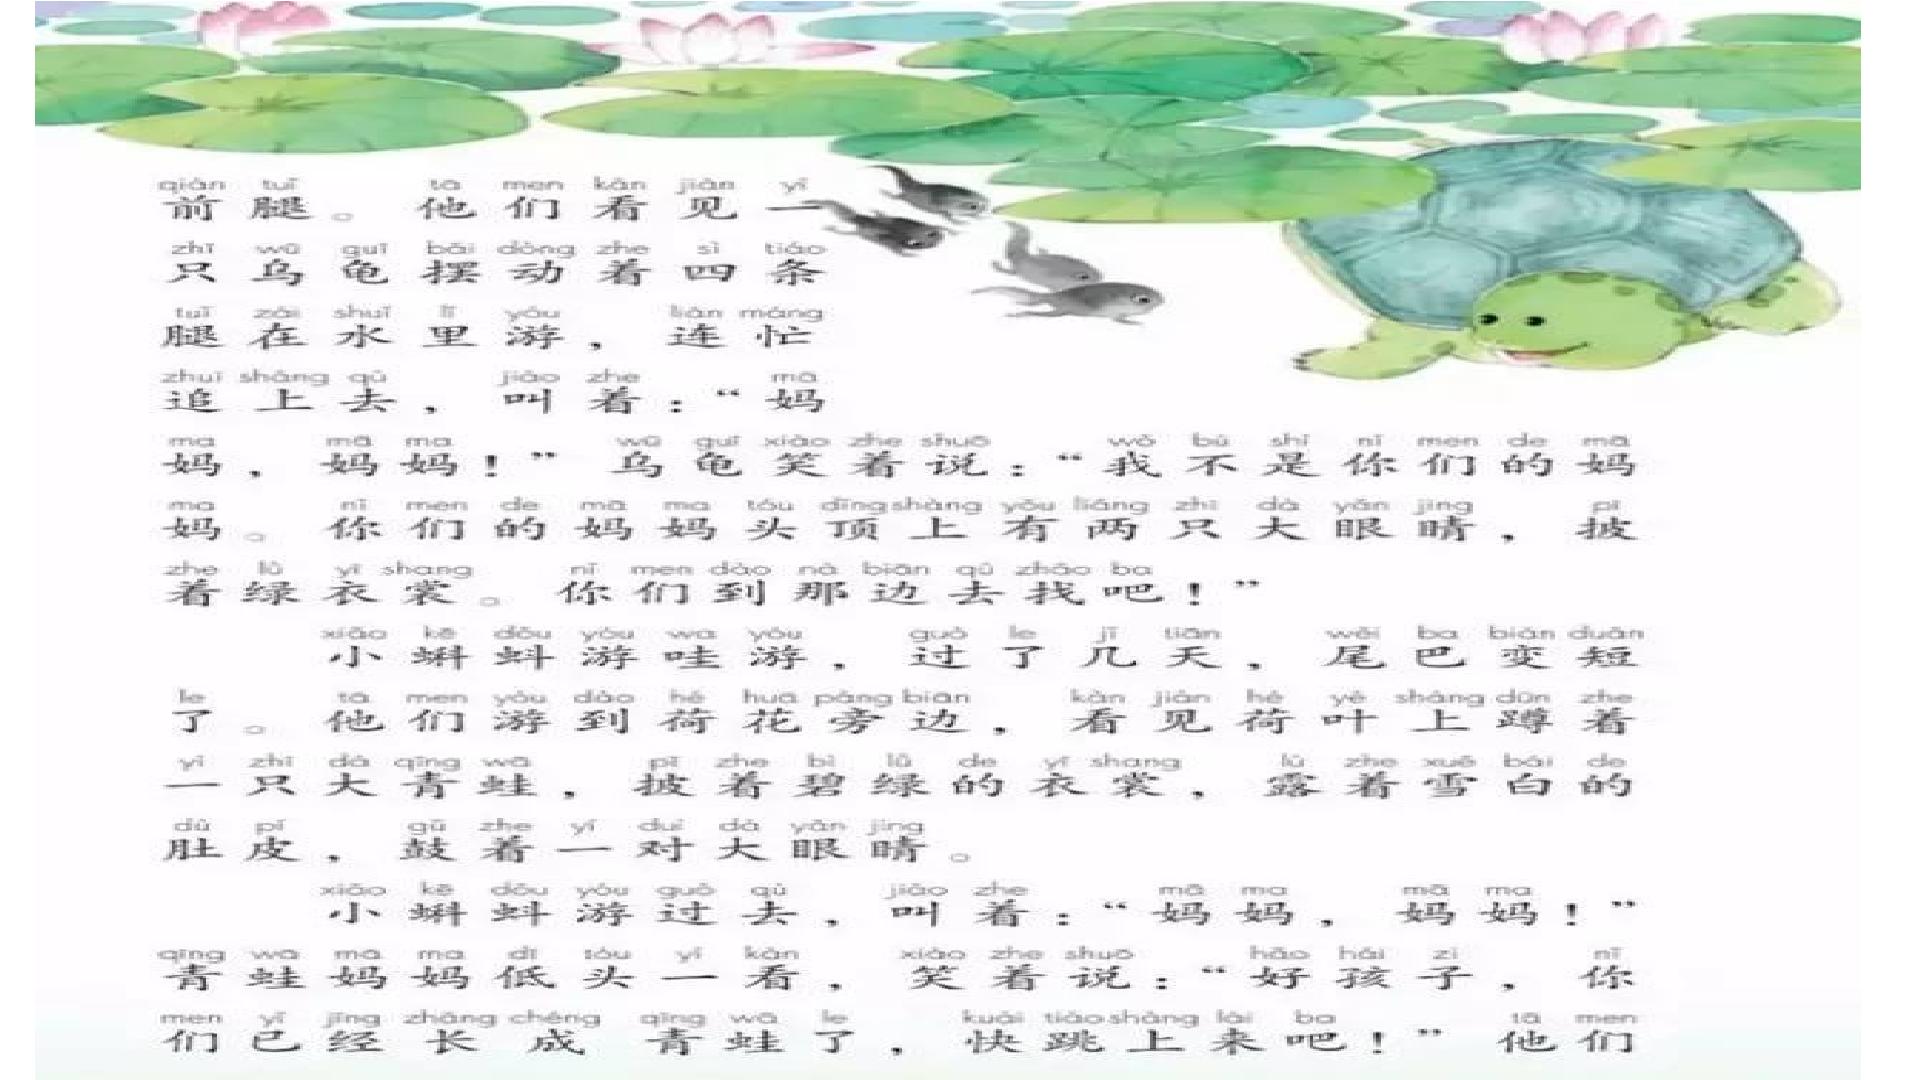 qián tuǐ tā men kàn jiàn yì
前腿。他们看见一
zhī wū guī bǎi dòng zhe sì tiáo
只乌龟摆动着四条
tuǐ zài shuǐ lǐ yóu lián máng
腿在水里游，连忙
zhuī shàng qù jiào zhe mā
追上去，叫着：“妈
ma mā ma wū guī xiào zhe shuō wǒ bú shì nǐ men de mā
妈，妈妈！”乌龟笑着说：“我不是你们的妈
ma nǐ men de mā ma tóu dǐng shàng yǒu liǎng zhī dà yǎn jing pī
妈。你们的妈妈头顶上有两只大眼睛，披
zhe lǜ yī shang nǐ men dào nà biān qù zhǎo ba
着绿衣裳。你们到那边去找吧！”
xiǎo kē dǒu yóu wa yóu guò le jǐ tiān wěi ba biàn duǎn
小蝌蚪游哇游，过了几天，尾巴变短
le tā men yóu dào hé huā páng biān kàn jiàn hé yè shàng dūn zhe
了。他们游到荷花旁边，看见荷叶上蹲着
yì zhī dà qīng wā pī zhe bì lǜ de yī shang lù zhe xuě bái de
一只大青蛙，披着碧绿的衣裳，露着雪白的
dù pí gǔ zhe yí duì dà yǎn jing
肚皮，鼓着一对大眼睛。
xiǎo kē dǒu yóu guò qù jiào zhe mā ma mā ma
小蝌蚪游过去，叫着：“妈妈，妈妈！”
qīng wā mā ma dī tóu yí kàn xiào zhe shuō hǎo hái zi nǐ
青蛙妈妈低头一看，笑着说：“好孩子，你
men yǐ jīng zhǎng chéng qīng wā le kuài tiào shàng lái ba tā men
们已经长成青蛙了，快跳上来吧！”他们